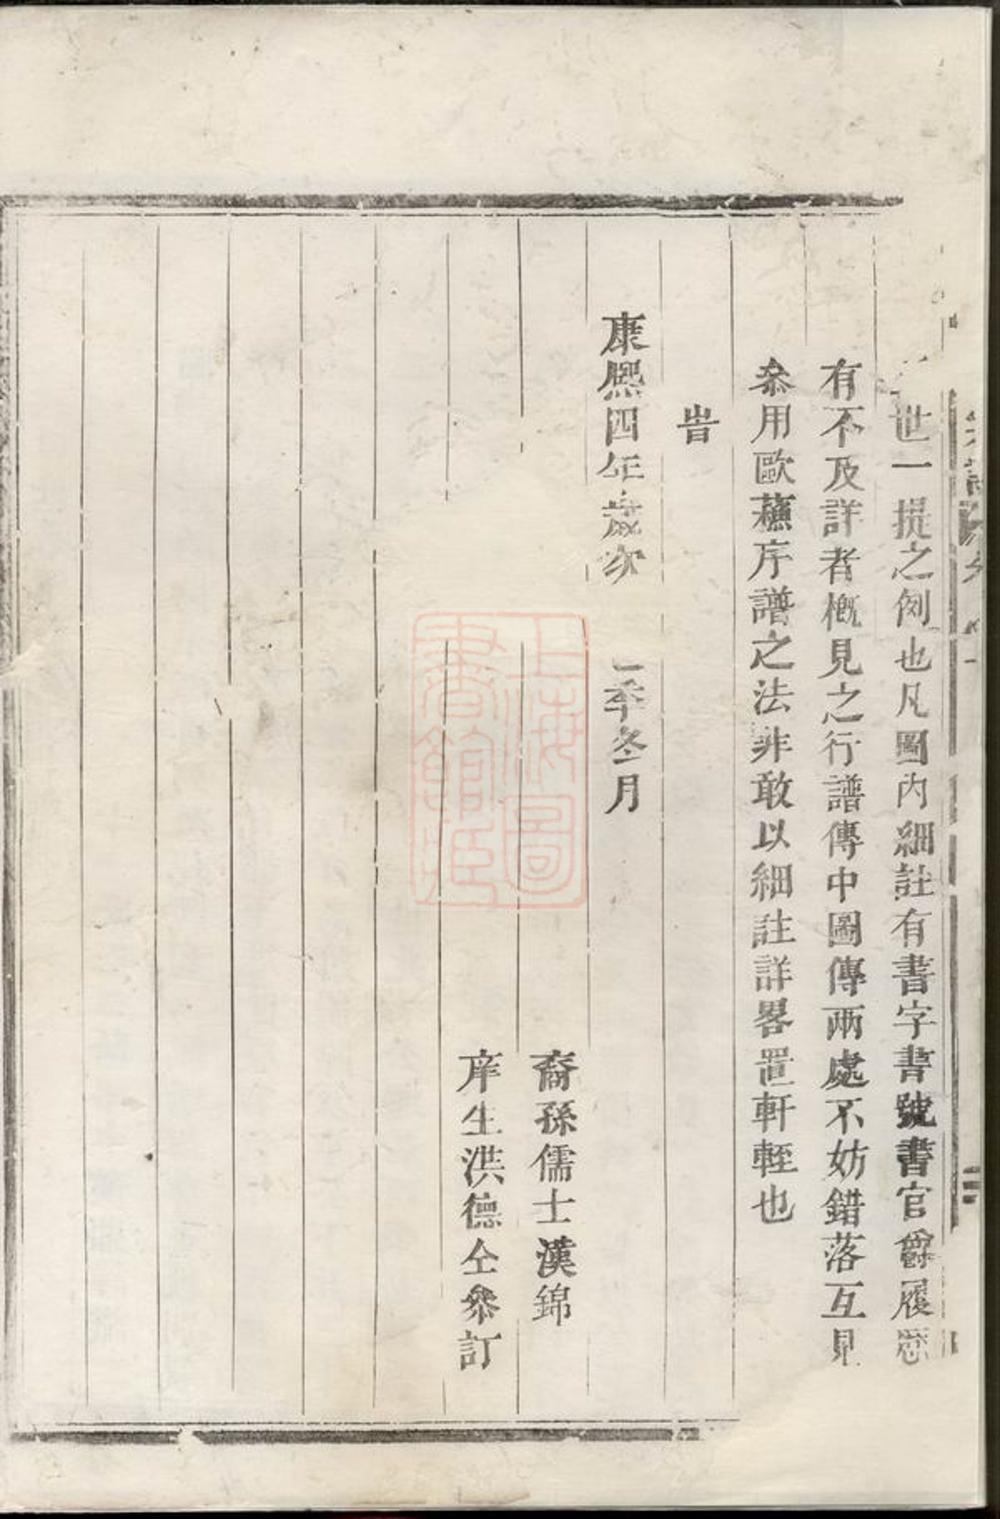 世一提之例也凡圖內細註有書字書號書官爵履歷
有不及詳者槪見之行譜傳中圖傳兩處不妨錯落互見
叅用歐蘓序譜之法非敢以細註詳畧置軒輊也
旹
康熙四年歲次
季冬月
裔孫儒士漢錦
庠生洪德仝叅訂
上海圖書館藏